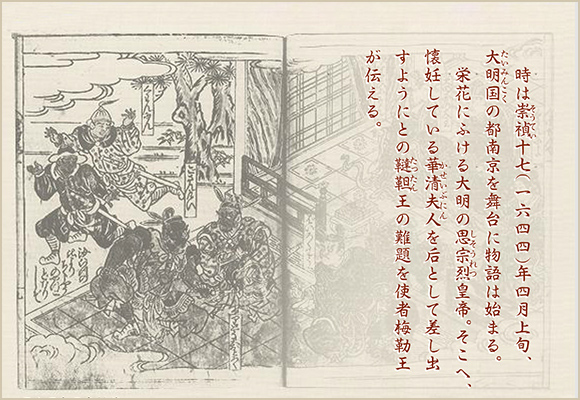 時は崇禎十七(一六四四)年四月上旬、
大明国の都南京を舞台に物語は始まる。
栄花にふける大明の思宗烈皇帝。そこへ、
懐妊している華清夫人を后として差し出
すようにとの韃靼王の難題を使者梅勒王
が伝える。